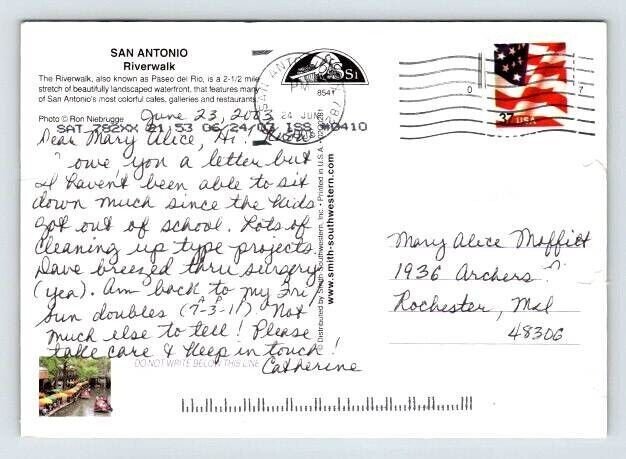 SAN ANTONIO
Riverwalk
The Riverwalk, also known as Paseo del Rio, is a 2-1/2 mile
stretch of beautifully landscaped waterfront, that features many
of San Antonio's most colorful cafes, galleries and restaurants.
Photo © Ron Niebrugge
June 23, 2003
SAT 782XX 21 53 06/24/03 ISS #0410
Dear Mary Alice, Hi!
I owe you a letter but
I haven't been able to sit
down much since the kids
got out of school. Lots of
cleaning up type projects
Dave breezed thru surgery
(yea). Am back to my Fri,
Sun doubles (7A-3-11P) Not
much else to tell! Please
take care & keep in touch!
Catherine
DO NOT WRITE BELOW THIS LINE
SAN ANTONIO
PM
24 JUN
SI
8541
© Distributed by Smith Southwestern, Inc. • Printed in U.S.A.
www.smith-southwestern.com
37 USA
Mary Alice Moffitt
1936 Archers
Rochester, Md
48306